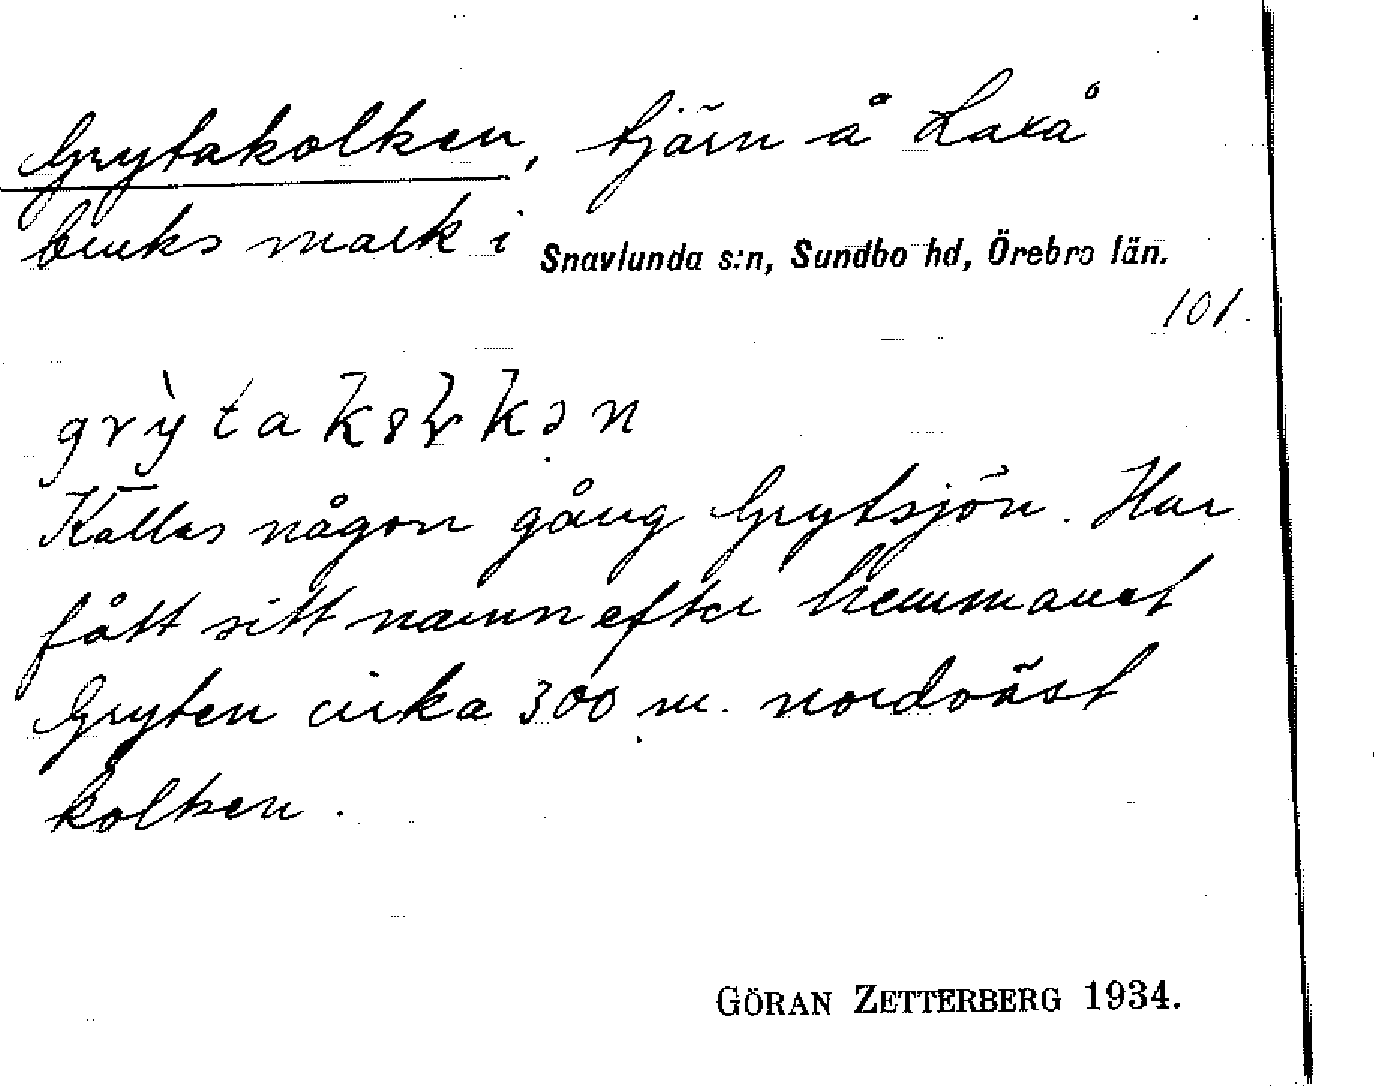 Grytakolken, tjärn å Laxå
bruks mark i Snavlunda s:n, Sundbo hd, Örebro län.
101.
Kallas någon gång Grytsjön. Har
fått sitt namn efter hemmanet
Gryten cirka 300 m. nordväst
kolken.
GÖRAN ZETTERBERG 1934.